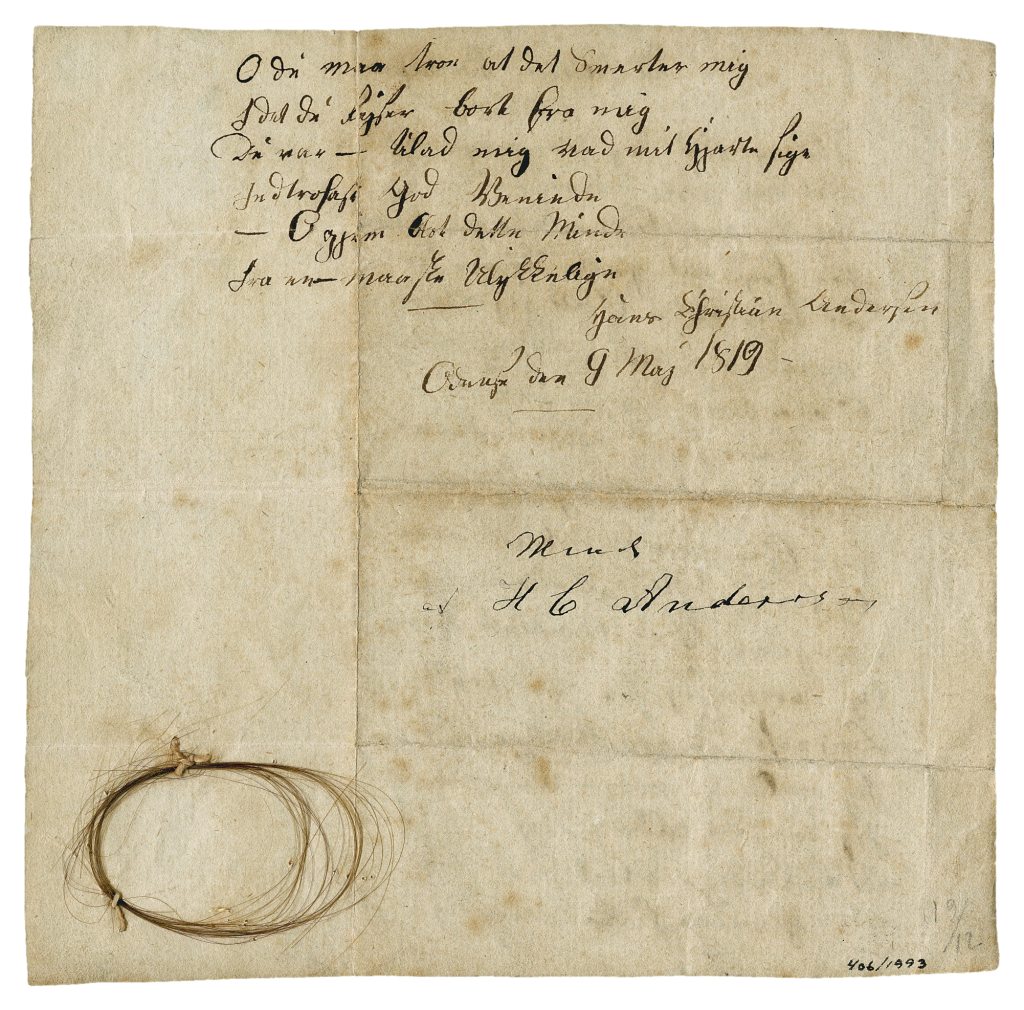 O du maa troe at det Smerter mig
I det du Rejser bort fra mig
Du var — tilad mig vad mit Hjarte sige
God Veninde
— O gjem dette Minde
Fra en maaske Ulykkelige
Hans Christian Andersen
Odense den 9 Maj 1819 -
Minde
af H C Andersen
19/12
406/1993